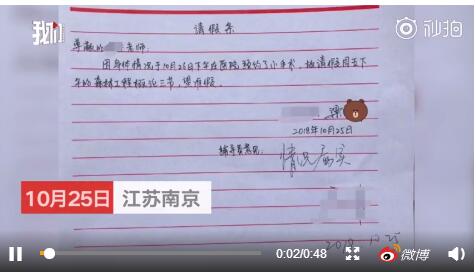 我们
秒拍
请假条
尊敬的 老师:
因身体情况于10月26日下午在医院预约了小手术,故请假周五下
午的森林工程概论三节,望准假。
2018年10月25日
辅导员意见:
情况属实
10月25日 江苏南京
2018.10.25
0:02/0:48
微博